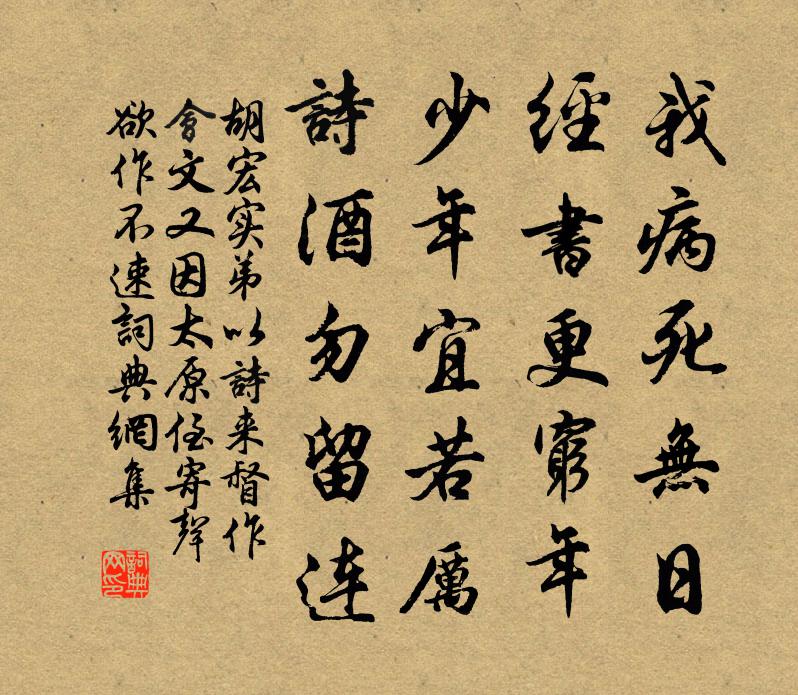 我病死無日
經書更窮年
少年宜若厲
詩酒勿留连
胡宏实弟以詩来督作
會文又因太原侄寄聲
欲作不速詞典網集
詞典網印